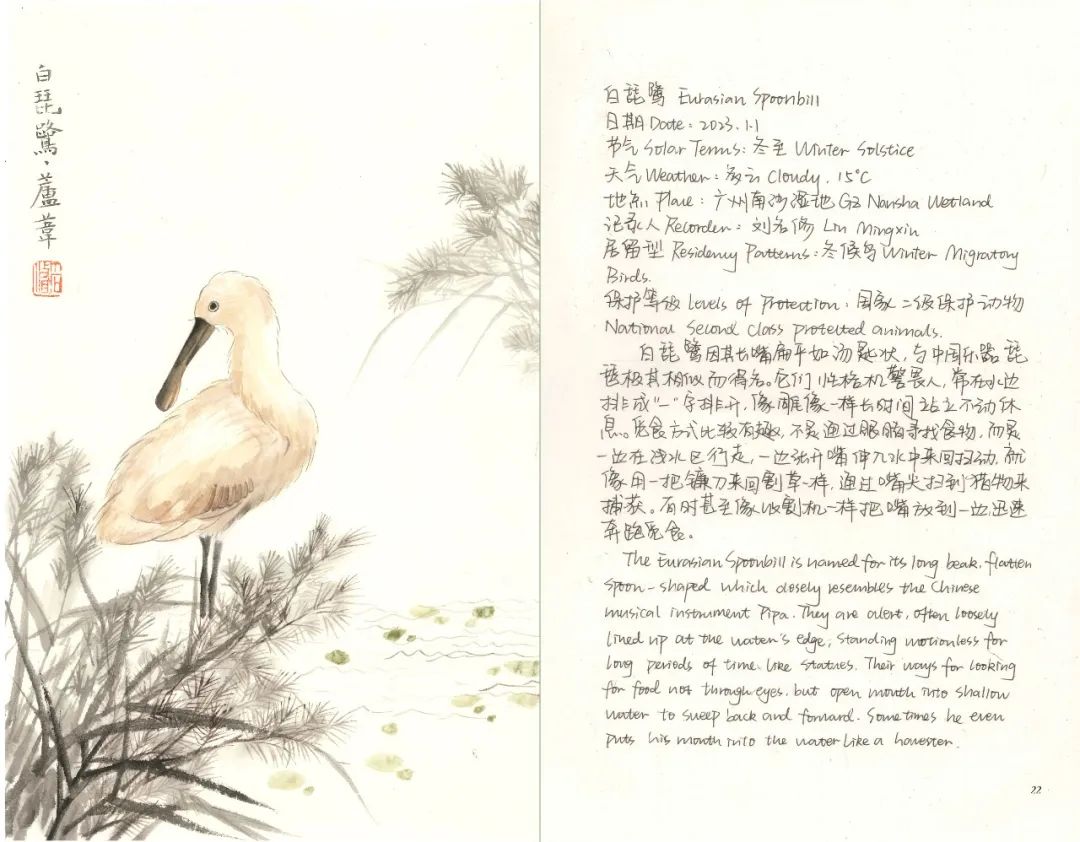 白琵鷺·蘆葦
白琵鹭 Eurasian Spoonbill
日期 Date: 2023.1.1
节气 Solar Terms: 冬至 Winter Solstice
天气 Weather: 多云 Cloudy. 15°C
地点 Place: 广州南沙湿地 GZ Nansha Wetland
记录人 Recorder: 刘名修 Liu Mingxin
居留型 Residency Patterns: 冬候鸟 Winter Migratory
Birds.
保护等级 Levels of Protection: 国家二级保护动物
National Second Class protected animals.
白琵鹭因其长嘴扁平如汤匙状，与中国乐器琵
琶极其相似而得名。它们性格机警畏人，常在水边
排成“一”字排开，像雕像一样长时间站立不动休
息。觅食方式比较有趣，不是通过眼睛寻找食物，而是
一边在浅水区行走，一边张开嘴伸入水中来回扫动，就
像用一把镰刀来回割草一样，通过嘴尖扫到猎物来
捕获。有时甚至像收割机一样把嘴放到一边迅速
奔跑觅食。
The Eurasian Spoonbill is named for its long beak, flatten
spoon-shaped which closely resembles the Chinese
musical instrument Pipa. They are alert, often loosely
lined up at the water's edge, standing motionless for
long periods of time like statues. Their ways for looking
for food not through eyes, but open mouth into shallow
water to sweep back and forward. Sometimes he even
puts his mouth into the water like a harvester.
22